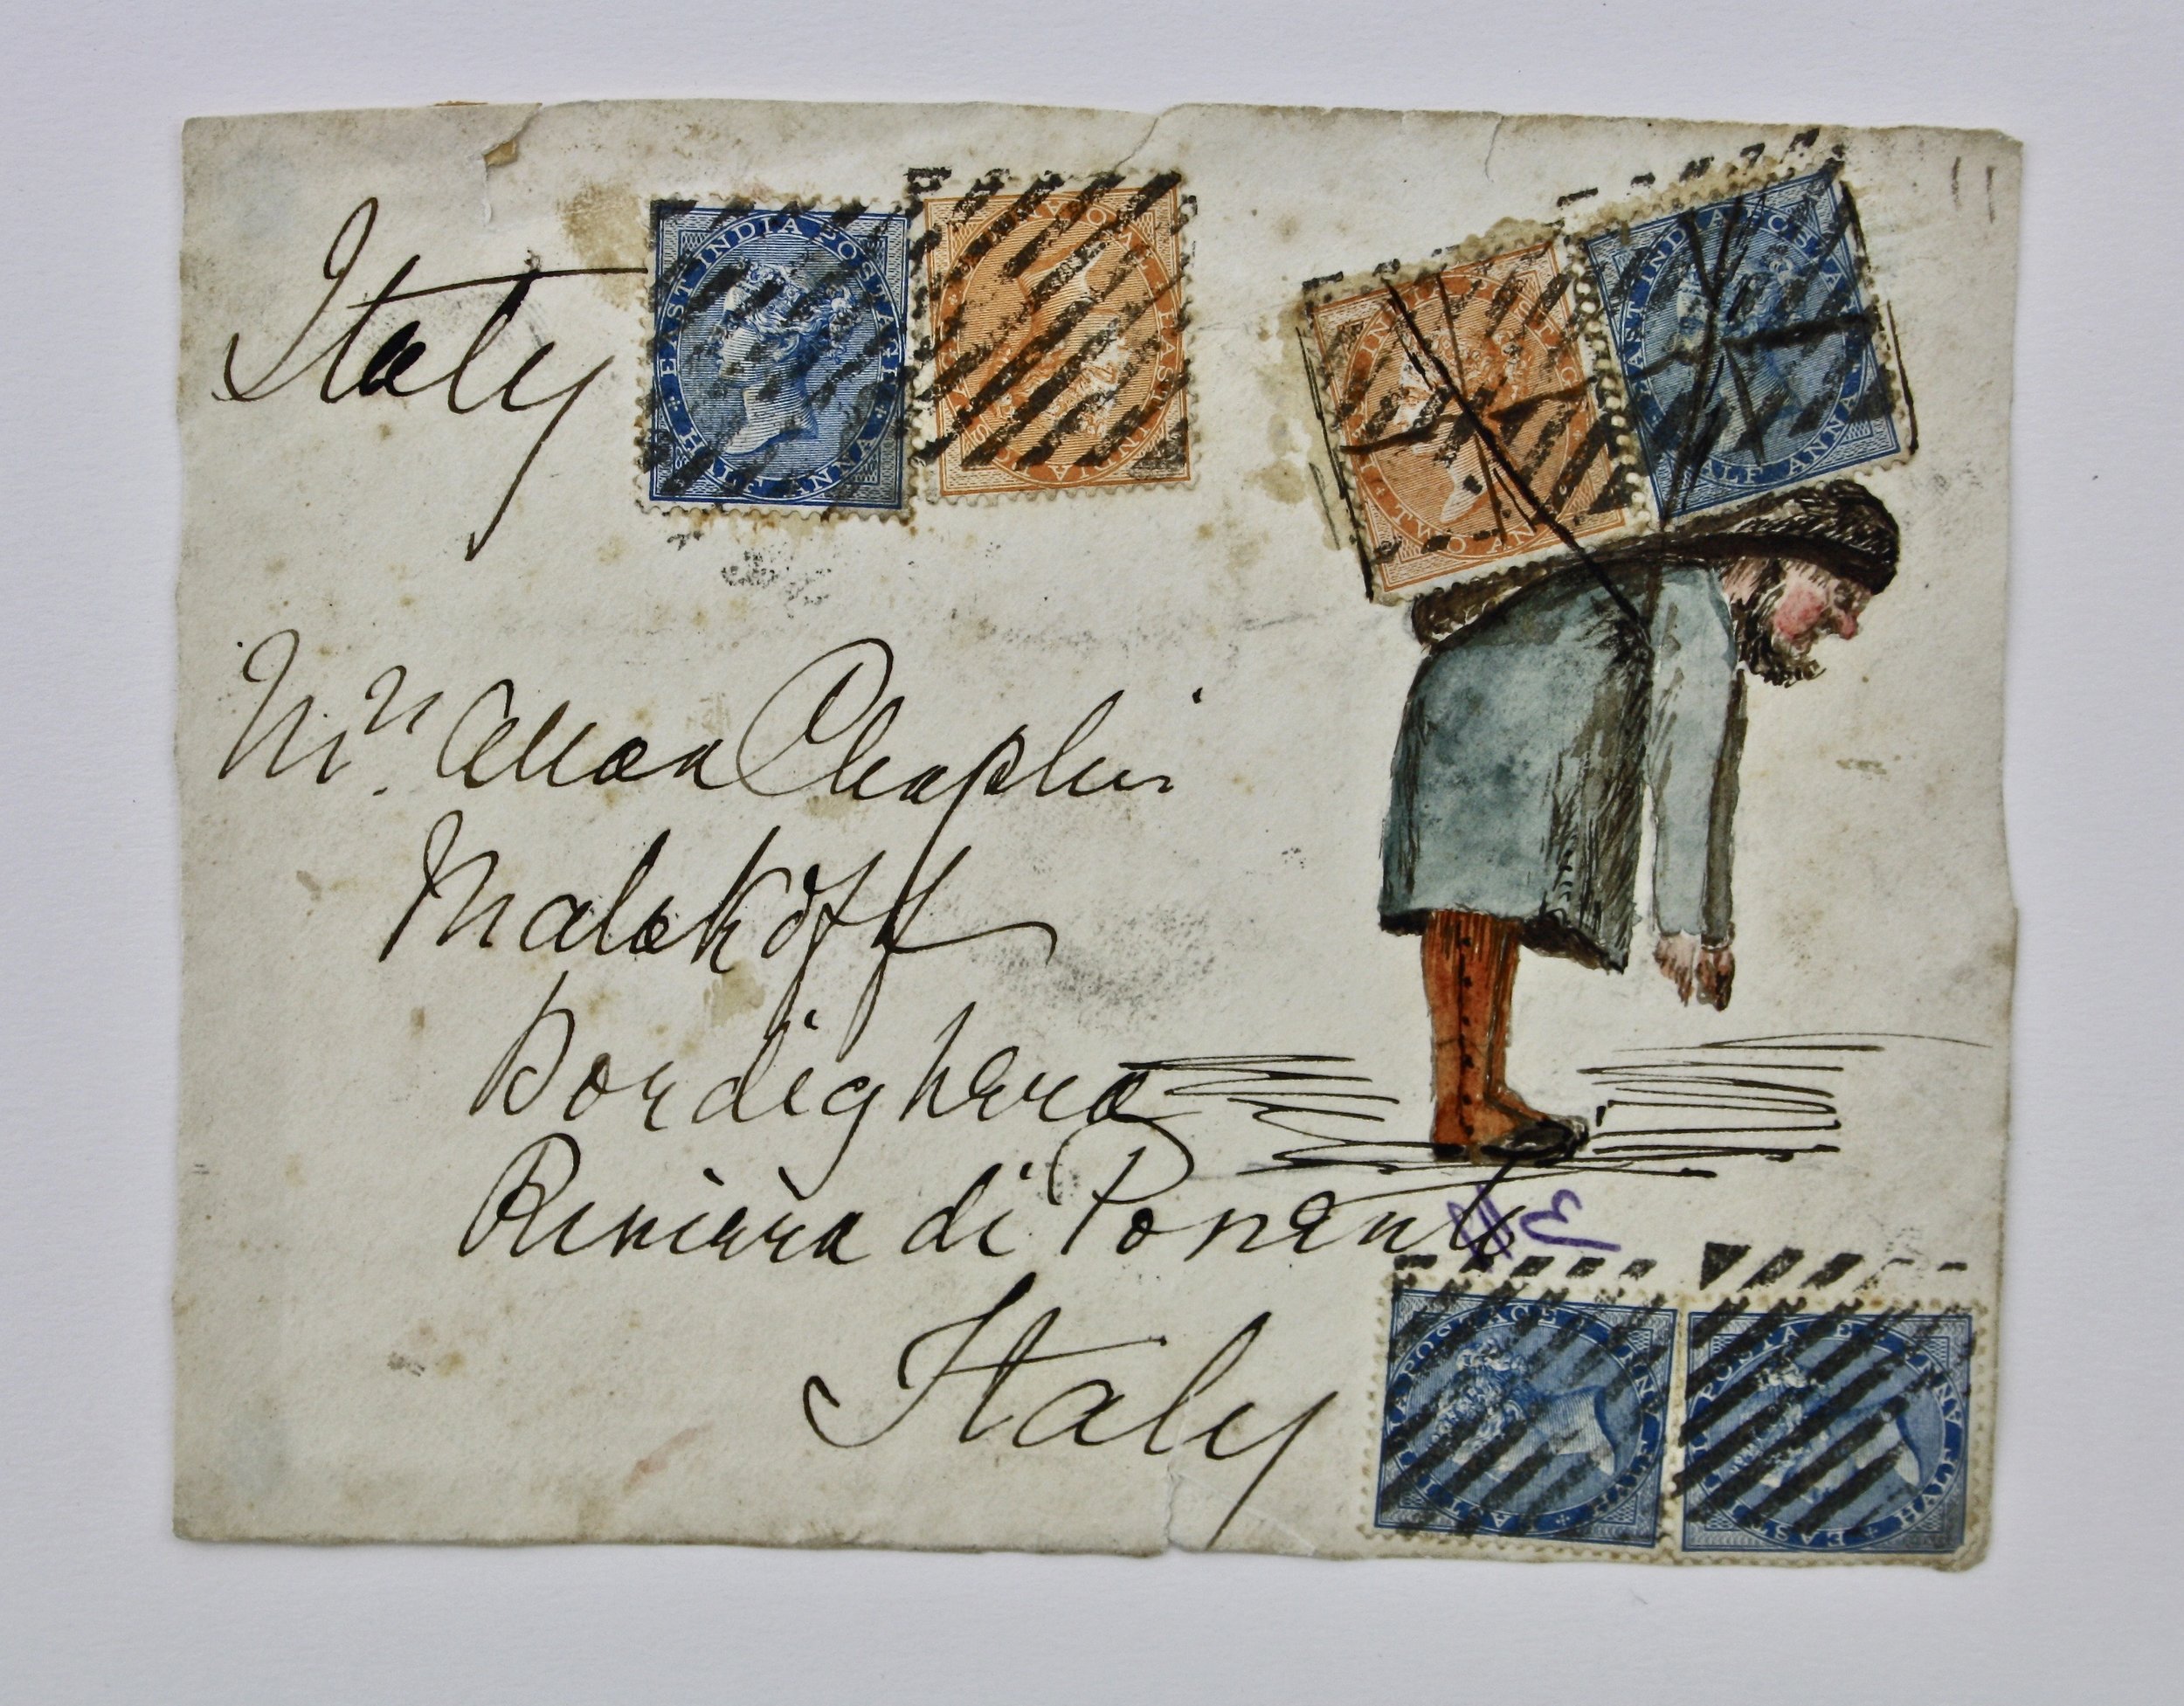 Italy
EAST INDIA POSTAGE
HALF ANNA
EAST INDIA POSTAGE
TWO ANNAS
EAST INDIA POSTAGE
HALF ANNA
Mrs. Allan Chaplin
Malakoff
Bordighera
Riviera di Ponente
Italy
EAST INDIA POSTAGE
HALF ANNA
EAST INDIA POSTAGE
HALF ANNA